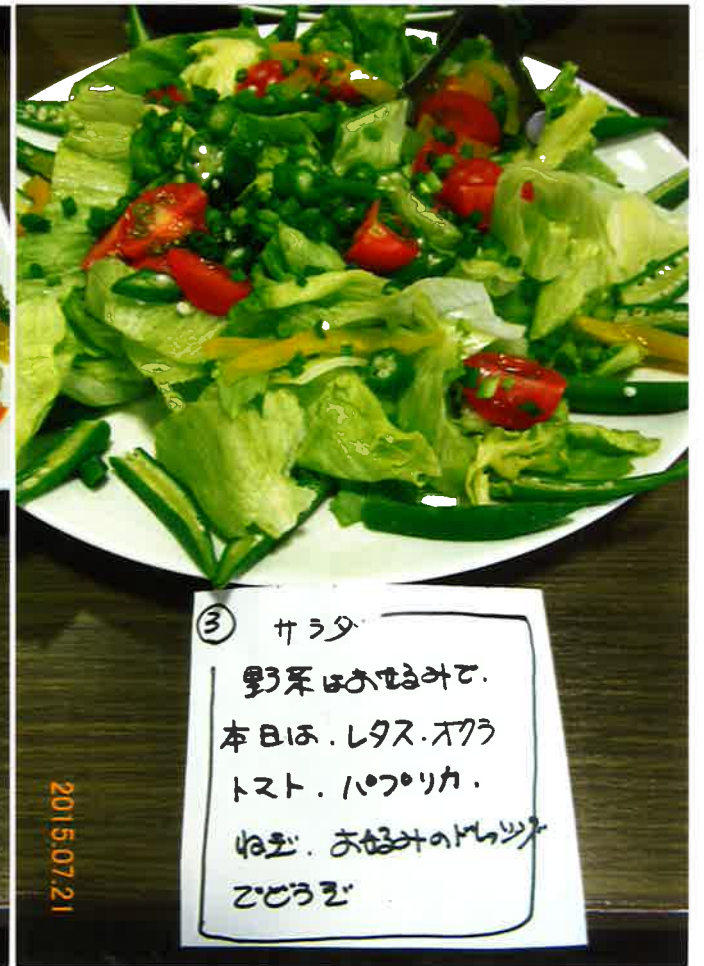 ③ サラダ
野菜はお好みで.
本日は.レタス.オクラ
トマト.パプリカ.
ねぎ.お好みのドレッシング
でどうぞ
2015.07.21